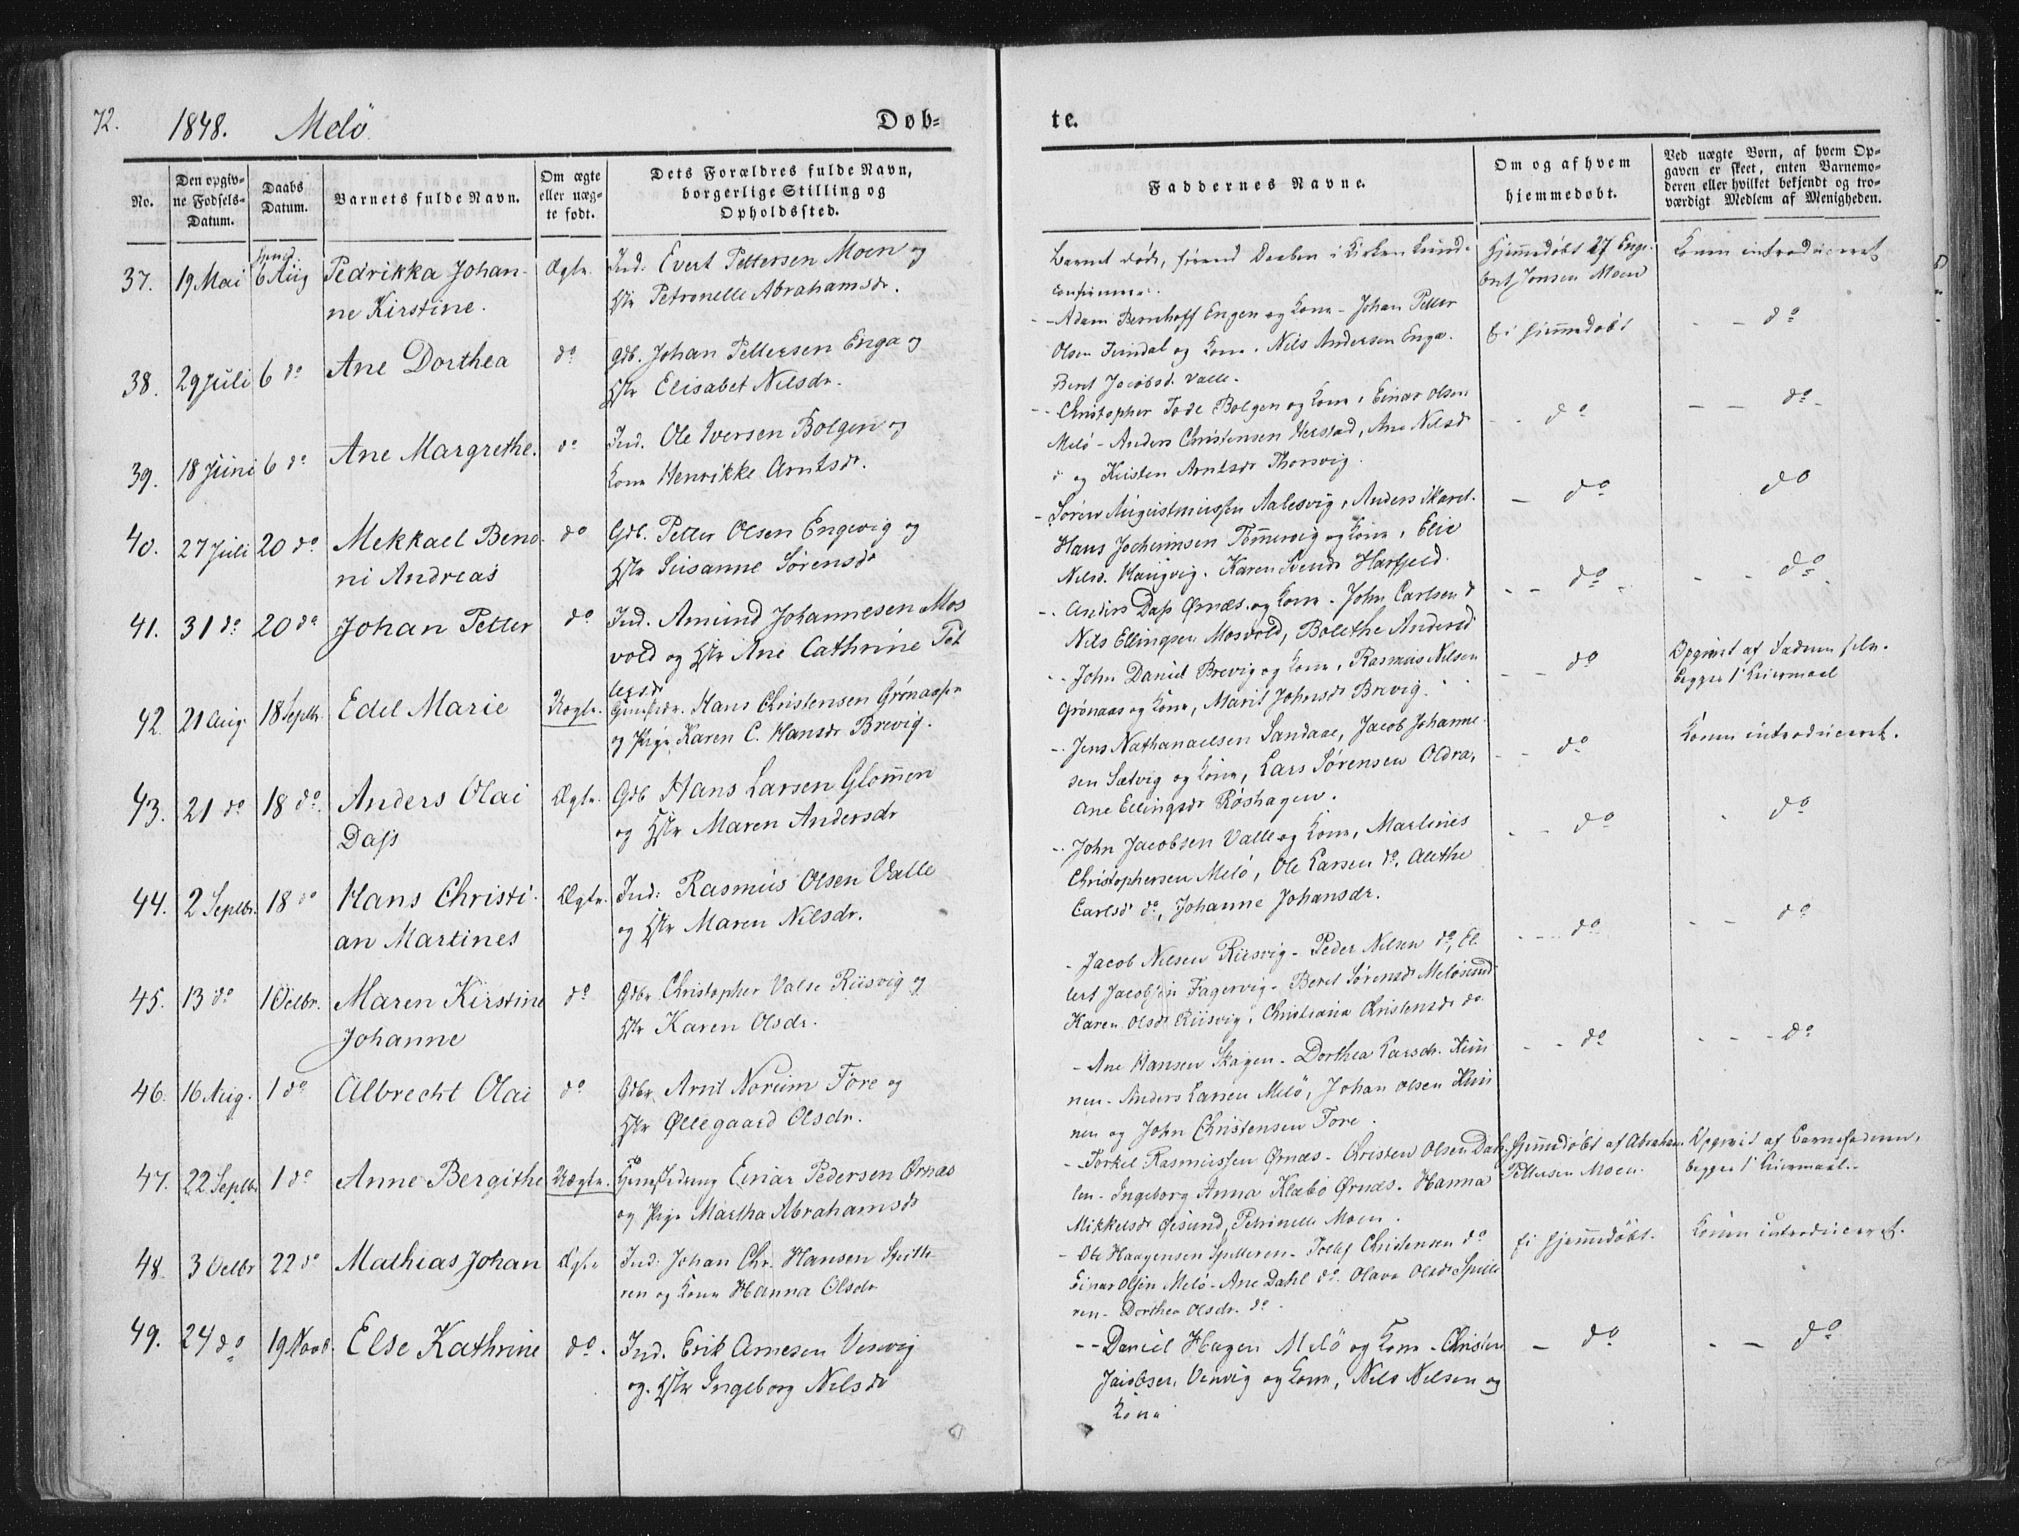 72. 1848. Melö. Døb-
te.
No.
Den opgiv-
ne Fødsels-
Datum.
Daabs
Datum.
Barnets fulde Navn.
Om ægte
eller uæg-
te født.
Dets Forældres fulde Navn,
borgerlige Stilling og
Opholdssted.
Faddernes Navne.
Om og af hvem
hjemmedøbt.
Ved uægte Børn, af hvem Op-
gaven er skeet, enten Barnemo-
deren eller hvilket bekjendt og tro-
værdigt Medlem af Menigheden.
37. 19 Mai 6 Aug Pedrikka Johan-
ne Kirstine.
Ægte. Ind. Evert Pettersen Moen og
Hstr Petronelle Abrahamsdr.
Barnet døde, førend Daaben i Kirken kund.
Hjemmedøbt 27 Enge-
bret Jensen Moen
Konen introduceret
38. 29 Juli 6 do Ane Dorthea do
Gdb. Johan Pettersen Enga og
Hstr Elisabet Nilsdr.
Adam Bernhoff Engen og Kone - Johan Petter
Olsen Jemdal og Kone. Nils Andersen Enga.
Beret Jacobsd. Valle.
Ei hjemmedøbt
- - do
39. 18 Juni 6 do Ane Margrethe. do
Ind. Ole Iversen Bolgen og
Kone Henrikke Arntsdr.
Christopher Tode Bolgen og Kone, Einar Olsen
Melö - Anders Christensen Herstad, Ane Nilsd
do og Kristen Arntsdr Thorsvig.
- - do
- - do -
40. 27 Juli 20 do Mekkael Beno-
ni Andreas
do Gdb. Petter Olsen Engevig og
Hstr Susanne Sørensdr
- Søren Augustinussen Aalesvig, Anders Skaret.
Hans Jochimsen Tømmervig og Kone, Elie
Nilsd. Haugvig. Karen Svends Harfjeld.
- do
do
41. 31 do 20 do Johan Petter do
Ind. Amund Johannesen Mos
vold og Hstr Ane Cathrine Tol
lefsdr
Anders Dass Ørnæs og Kone - John Carlsen do
Nils Ellingsen Mosvold, Bolethe Andersd
- - do -
- - do -
42. 21 Aug. 18 Septbr. Edel Marie Uægte.
Hans Christensen Grønaasen
og Pige Karen C. Hansdr Brevig.
- - John Daniel Brevig og Kone, Rasmus Nilsen
Grønaas og Kone, Marit Johnsdr Brevig.
- - do
Opgivet af Faderen selv.
begges 1ste Leiermaal
43. 21 do 18 do. Anders Olai
Dass
Ægte. Gdb Hans Larsen Glommen
og Hstr Maren Andersdr
- - Jens Nathanaelsen Sandaae, Jacob Johanne-
sen Sætvig og Kone, Lars Sørensen Oldra,
Ane Ellingsdr Røshagen.
- - do
Konen introduceret.
44. 2 Septbr. 18 do Hans Christi-
an Martines
Ægte. Ind: Rasmus Olsen Valle
og Hstr Maren Nilsdr.
- - John Jacobsen Valle og Kone, Martines
Christophersen Melö, Ole Larsen do, Alethe
Carlsd do, Johanne Johansdr.
- - do
- do
45. 13 do 1 Octbr. Maren Kirstine
Johanne
do Gdbr Christopher Valse Riisvig og
Hstr Karen Olsdr.
- Jacob Nilsen Riisvig - Peder Nilsen do, El-
lert Jacobsen Fagervig - Beret Sørensdr Melösund
Karen Olsdr Riisvig, Christiana Christensdr do
- - - do
- - do
46. 16 Aug. 1 do Albrecht Olai do
Gdbr Arnt Noreim Fore og
Hstr Øllegaard Olsdr.
- Ane Hansen Skagen - Dorthea Larsdr. Kun
nen - Anders Larsen Melö, Johan Olsen Kun
nen og John Christensen Fore.
- - do
- - - do
47. 22 Septbr 1 do Anne Bergithe Uægte.
Einar Pedersen Ørnæs
og Pige Martha Abrahamsdr
- Torkel Rasmussen Ørnæs - Christen Olsen Dah-
len - Ingeborg Anna Klæbo Ørnæs. Hanna
Mikkelsdr Øesund, Petrinelle Moen.
Hjemmedøbt af Abraham
Pettersen Moen.
Opgivet af Barnefaderen,
begges 1ste Leiermaal.
48. 3 Octbr 22 do Mathias Johan Ægte
Ind. Johan Chr. Hansen Spilde
ren og Kone Hanna Olsdr
- Ole Haagensen Spilderen - Tollef Christensen do
Einar Olsen Melö - Ane Dahl do. Olava Olsdr Spilde
ren - Dorthea Olsdr. do -
Ei hjemmedøbt.
Konen introduceret.
49. 24 do 19 Novb. Else Kathrine do.
Ind. Erik Arnesen Venvig
og Hstr Ingeborg Nilsdr
- - Daniel Hagen Melö og Kone - Christen
Jacobsen Venvig og Kone, Nils Nilsen og
Kone
- do
- - do